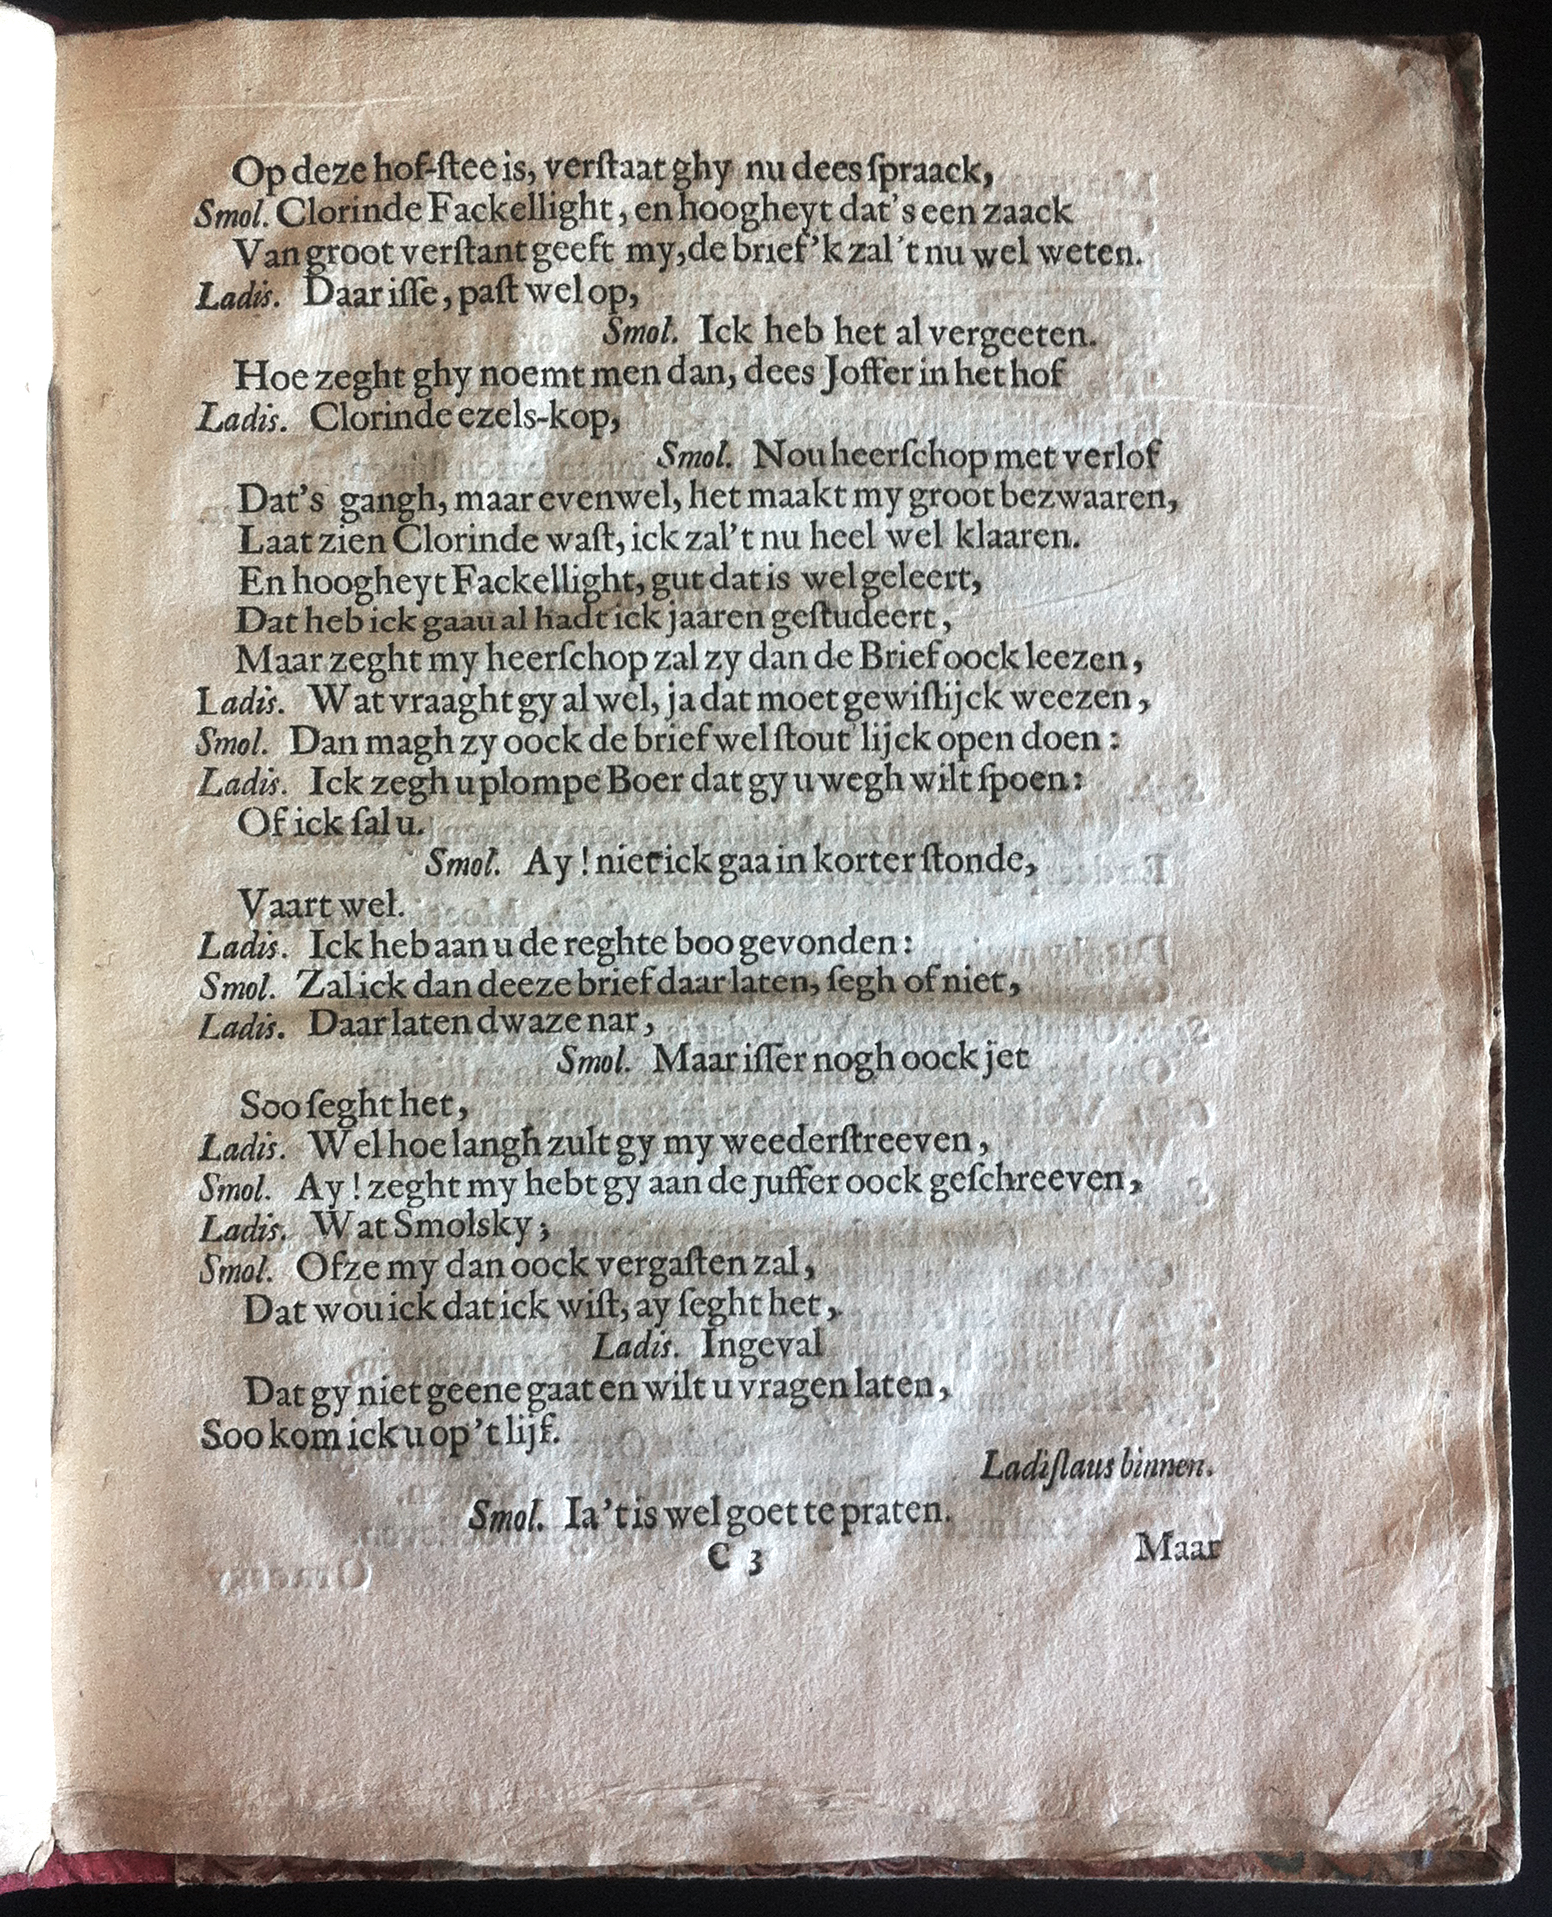 Op deze hof-ſtee is, verſtaat ghy nu dees ſpraack,
Smol. Clorinde Fackellight, en hoogheyt dat's een zaack
Van groot verſtant geeft my, de brief 'k zal 't nu wel weten.
Ladis. Daar iſſe, paſt wel op,
Smol. Ick heb het al vergeeten.
Hoe zeght ghy noemt men dan, dees Joffer in het hof
Ladis. Clorinde ezels-kop,
Smol. Nou heerſchop met verlof
Dat's gangh, maar evenwel, het maakt my groot bezwaaren,
Laat zien Clorinde waſt, ick zal 't nu heel wel klaaren.
En hoogheyt Fackellight, gut dat is wel geleert,
Dat heb ick gaau al hadt ick jaaren geſtudeert,
Maar zeght my heerſchop zal zy dan de Brief oock leezen,
Ladis. Wat vraaght gy al wel, ja dat moet gewiſlijck weezen,
Smol. Dan magh zy oock de brief wel ſtout lijck open doen:
Ladis. Ick zegh u plompe Boer dat gy u wegh wilt ſpoen:
Of ick ſal u.
Smol. Ay! niet ick gaa in korter ſtonde,
Vaart wel.
Ladis. Ick heb aan u de reghte boo gevonden:
Smol. Zal ick dan deeze brief daar laten, ſegh of niet,
Ladis. Daar laten dwaze nar,
Smol. Maar iſſer nogh oock jet
Soo ſeght het,
Ladis. Wel hoe langh zult gy my weederſtreeven,
Smol. Ay! zeght my hebt gy aan de juffer oock geſchreeven,
Ladis. Wat Smolsky;
Smol. Ofze my dan oock vergaſten zal,
Dat wou ick dat ick wiſt, ay ſeght het,
Ladis. Ingeval
Dat gy niet geene gaat en wilt u vragen laten,
Soo kom ick u op 't lijf.
Ladiſlaus binnen.
Smol. Ia 't is wel goet te praten.
C 3
Maar